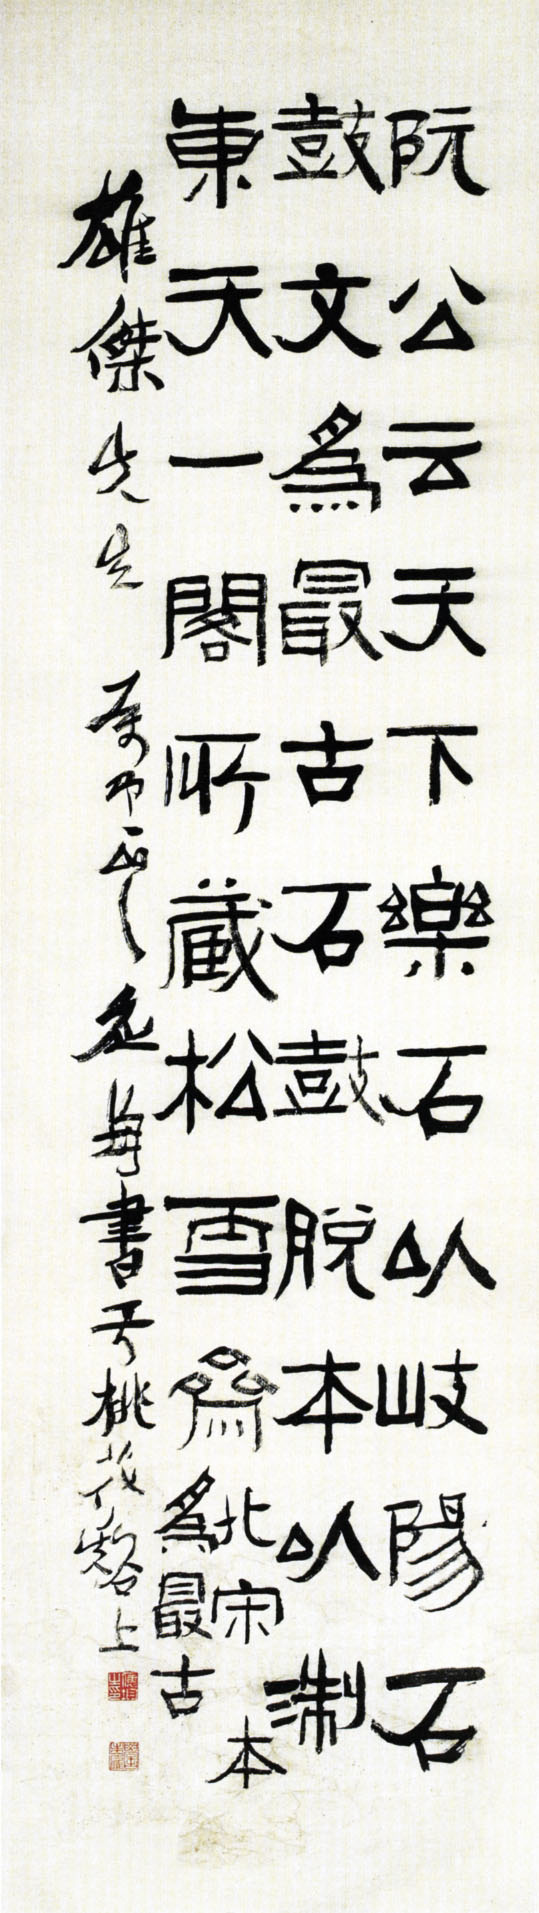 阮公云天下樂石以岐陽石
鼓文爲最古石鼓脫本以浙
東天一閣所藏松雪齋北宋本
爲最古
雄傑先生屬即正之 書于桃花谿上